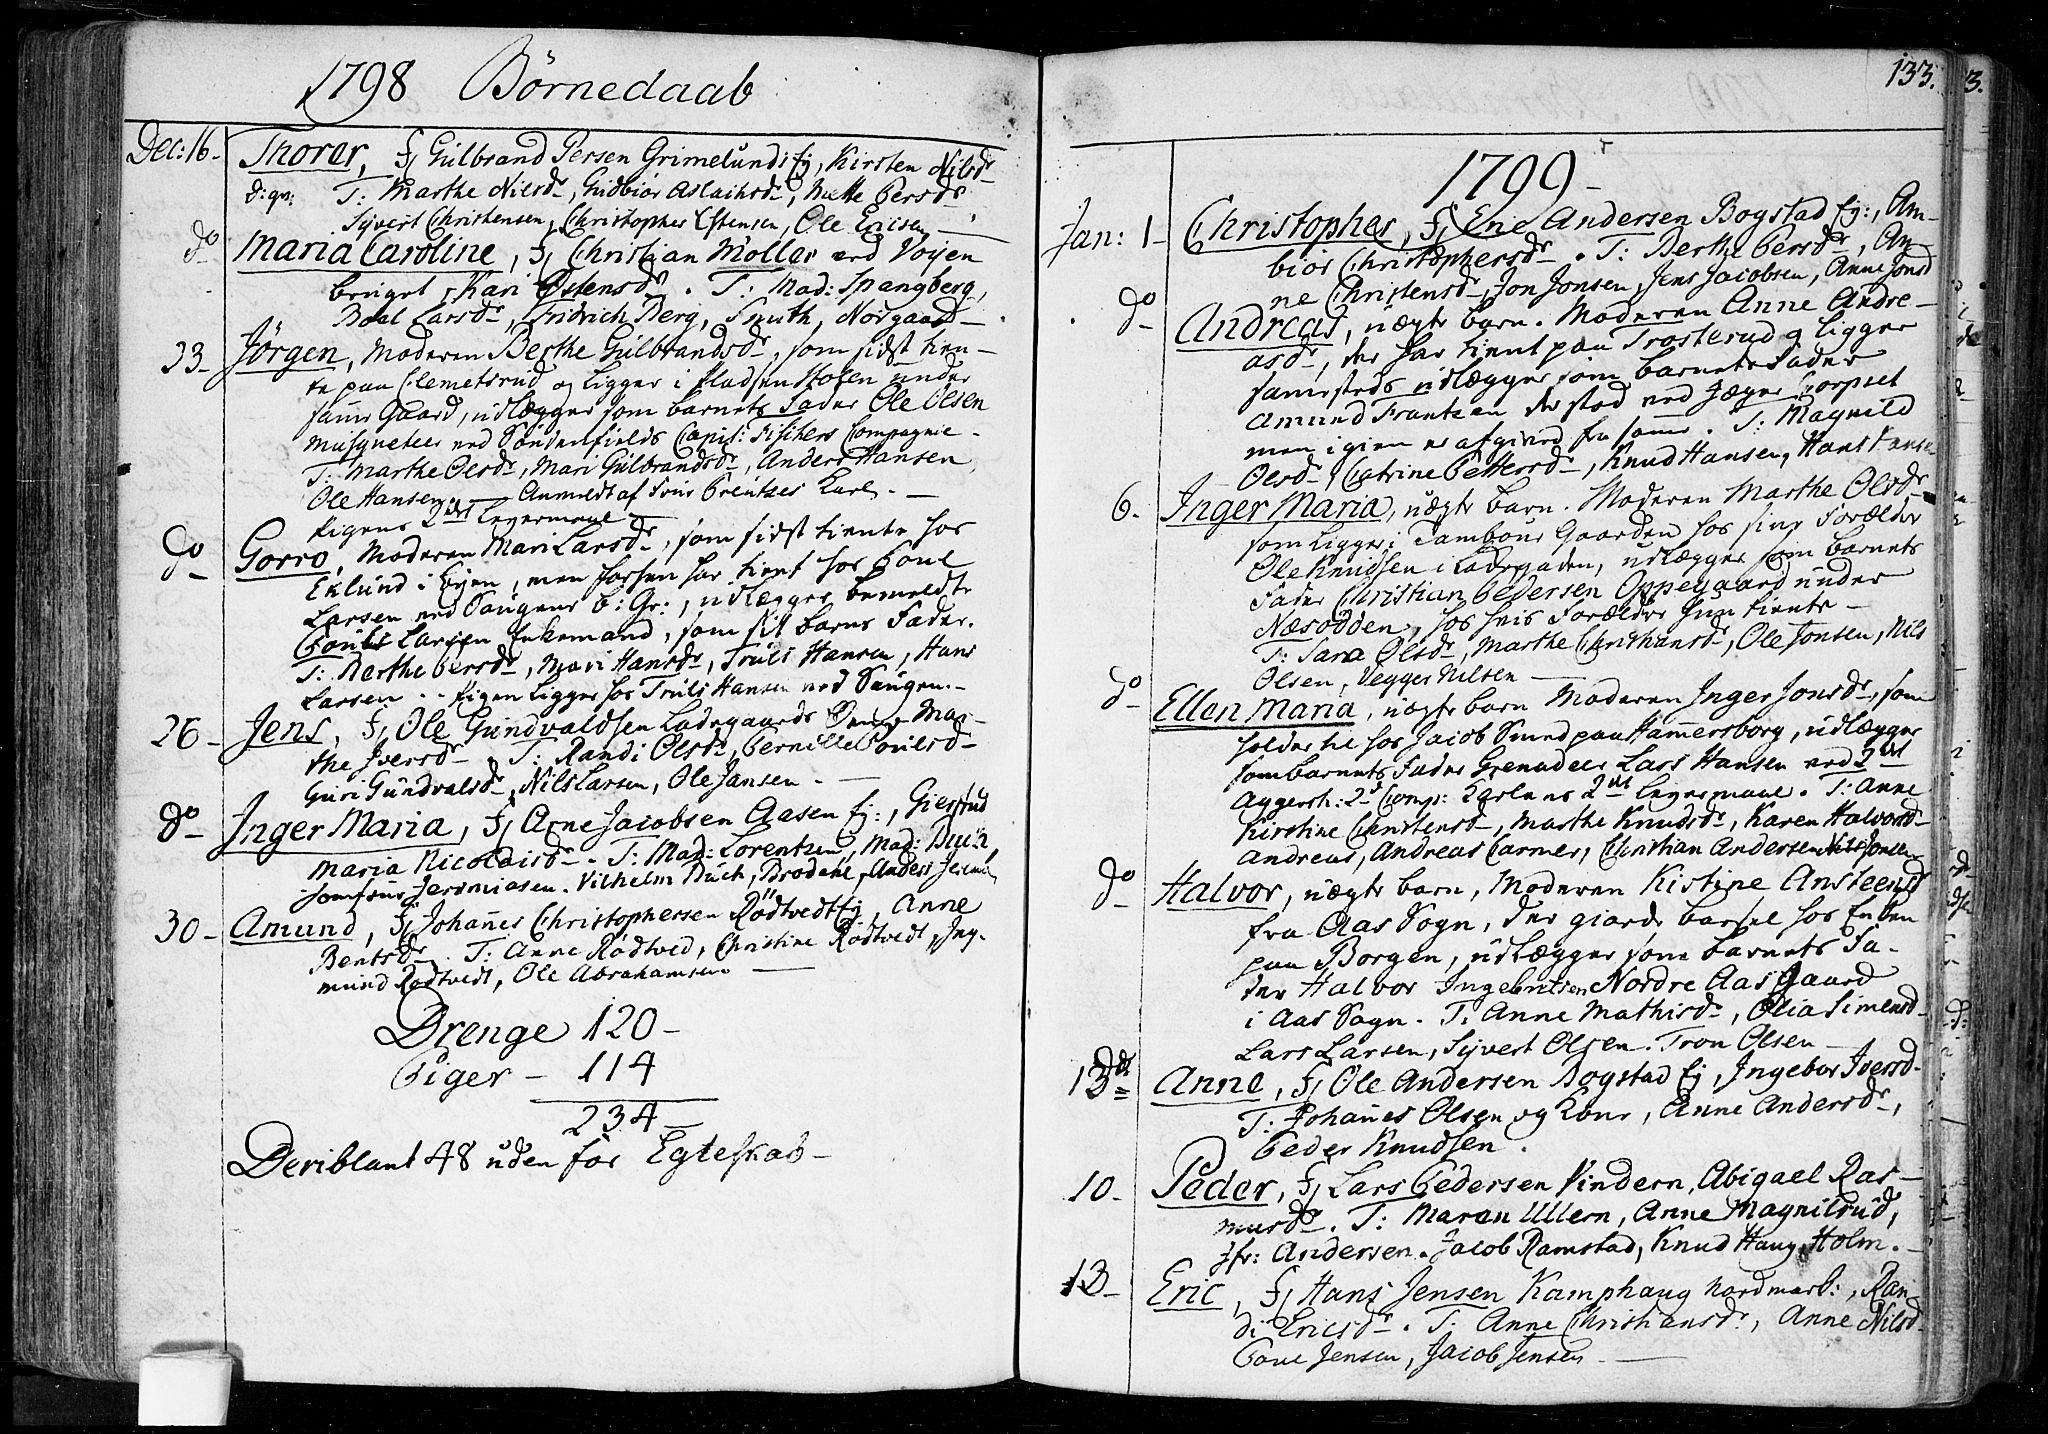 1798 Börnedaab
Dec: 16. Thorer, F/ Gulbrand Persen Grimelund Ej, Kirsten Nilsdr
d: gr: T: Marthe Nilsdr, Gudbiör Aslachsdr, Mette Persdr
Syvert Christensen, Christopher Estensen, Ole Ericsen —
do Maria Caroline, F/ Christian Möller ved Vöyen
bruget, Kari Östensdr. T: Mad: Spangberg,
Boel Larsdr, Fridrich Berg, Smith, Norgaard —
23. Jörgen, Moderen Berthe Gulbrandsdr, som sidst tien-
te paa Clemetsrud og ligger i Pladsen Stolen under
samme Gaard, udlægger som barnets Fader Ole Olsen
Musqueteer ved Söndenfields Capit: Fischers Compagnie.
T: Marthe Olsdr, Mari Gulbrandsdr, Anders Hansen,
Ole Hansen — Anmeldt af Frue Preutzes Karl. —
Pigens 2det Leyermaal —
do Gorro, Moderen Mari Larsdr, som sidst tiente hos
Eklund i Byen, men forhen har tient hos Poul
Larsen ved Saugene b: Gr:, udlægger bemeldte
Pouls Larsen Enkemand, som sit barns Fader.
T: Berthe Persdr, Mari Hansdr, Truls Hansen, Hans
Larsen. - Pigen ligger hos Truls Hansen ved Saugen. -
26 - Jens, F/ Ole Gundvaldsen Ladegaards Mar-
the Iversdr. T: Randi Olsdr, Pernille Poulsd-
Guri Gundvalsdr, Nils Larsen, Ole Jansen. —
do Inger Maria, F/ Arne Jacobsen Aasen Ej:, Giertrud
Maria Nicolaisdr. T: Mad: Lorentzen, Mad: Buch,
Jomfrue Jeremiasen. Vilhelm Buch, Brodahl, Anders Jeremi
30 - Amund, F/ Johannes Christophersen Rödtvedt Ej, Anne
Bentsdr. T: Anne Rödtved, Christine Rödtvedt, Ing-
mund Rödtvedt, Ole Abrahamsen —
Drenge 120 -
Piger - 114
234 -
Deriblant 48 uden for Egteskab -
133.
1799 -
Jan: 1 - Christopher, F/ Eric Andersen Bogstad Ej:, Am-
biör Christophersdr. T: Berthe Persdr, An-
ne Christensdr, Jon Jonsen, Jens Jacobsen, Anne Jonsd
do Andreas, uægte barn. Moderen Anne Andre-
asdr, der har tient paa Trosterud og ligger
sammesteds udlægger som barnets Fader
Amund Frantzen der stod ved Jæger Corpset
men igien er afgived fra samme. T: Magnild
Olsdr, Catrine Pettersdr, Knud Hansen, Hans
6. Inger Maria, uægte barn. Moderen Marthe Olsdr
som ligger i Tambour Gaarden hos sine Forældre
Ole Knudsen i Ladegaden, udlægger som barnets
Fader Christian Pedersen Oppegaard under
Næsodden, hos hvis Forældre hun tiente —
T: Sara Olsdr, Marthe Christiansdr, Ole Jonsen, Nils
Olsen, Vegger Nilsen —
do Ellen Maria, uægte barn Moderen Inger Jonsdr, som
holder til hos Jacob Smed paa Hammersborg, udlægger
som barnets Fader Grenadeer Lars Hansen ved 2det
Aggersh: 2d Comp: Karlens 2det Leyermaal. T: Anne
Kirstine Christensdr, Marthe Knudsdr, Karen Halvorsd-
Andreas, Andreas Carmer, Christian Andersen Nils Jonsen
do Halvor, uægte barn, Moderen Kistine Ansteensd
fra Aas Sogn, der giorde barsel hos Enken
paa Borgen, udlægger som barnets Fa-
der Halvor Ingebritsen Nordre Aas Gaard
i Aas Sogn. T: Anne Mathisdr, Olia Simensd-
Lars Larsen, Syvert Olsen. Tron Olsen —
13de Anne, F/ Ole Andersen Bogstad Ej, Ingebor Iversd-
T: Johannes Olsen og Kone, Anne Andersdr,
Peder Knudsen.
10 - Peder, F/ Lars Pedersen Vindern, Abigael Ras-
musdr. T: Maren Ullern, Anne Magnilsrud,
Jfr: Andersen. Jacob Ramstad, Knud Haug, Holm. -
13 - Eric, F/ Hans Jensen Kamphaug Nordmark:, Ran-
di Ericsdr. T: Anne Christiansdr, Anne Nilsd-
Poul Jensen, Jacob Jensen —